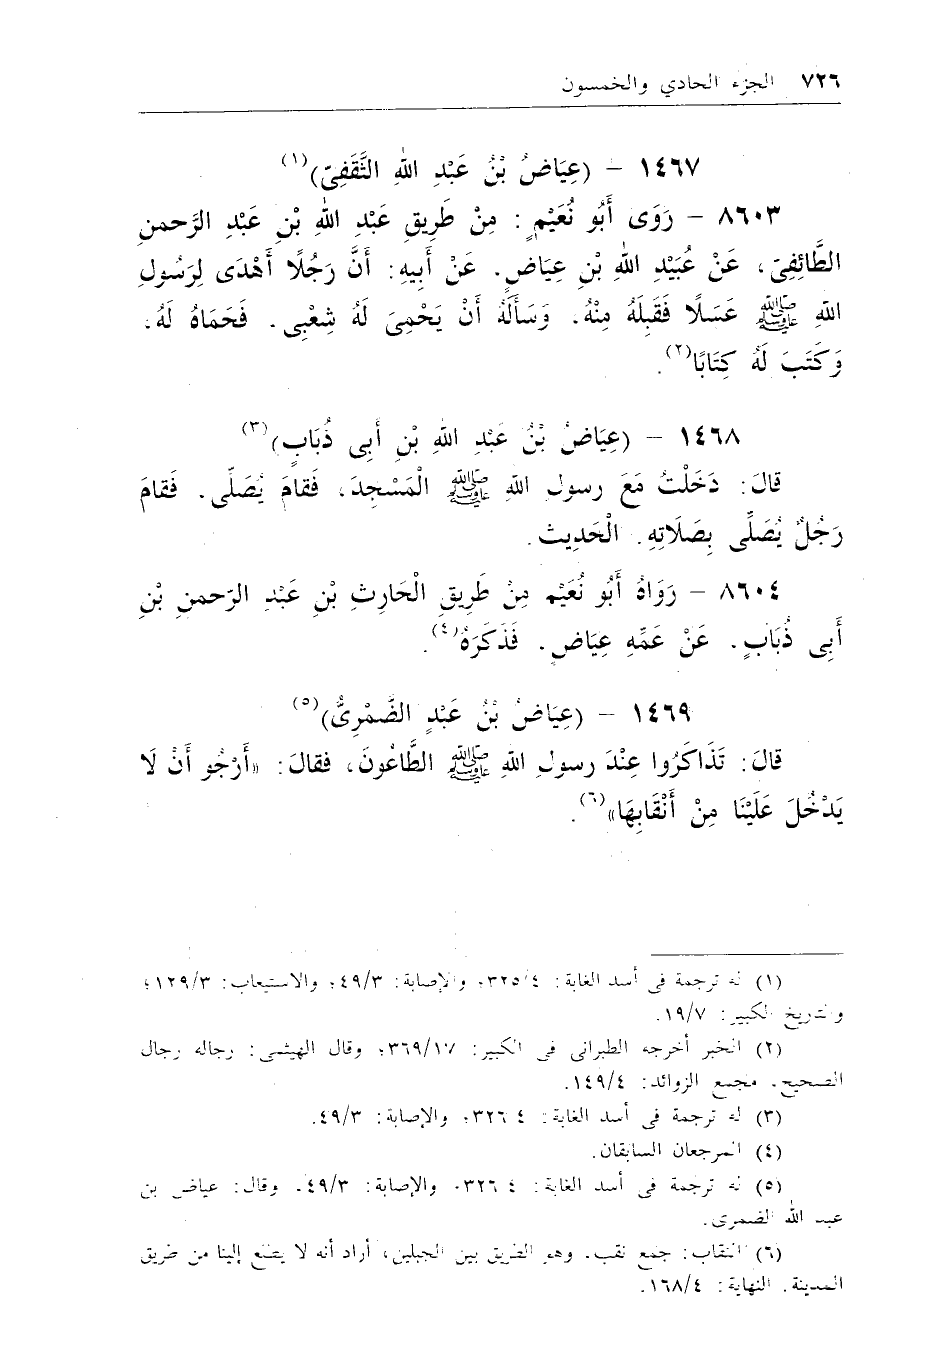 ٧٢٦ الجزء الحادي والخمسون
١٤٦٧ – (عِيَاضُ بْنُ عَبْدِ اللهِ الثَّقَفِىّ)(١)
٨٦٠٣ – رَوَى أَبُو نُعَيْمٍ: مِنْ طَرِيقِ عَبْدِ اللهِ بْنِ عَبْدِ الرَّحمنِ
الطَّائِفِىّ، عَنْ عُبَيْدِ اللهِ بْنِ عِيَاضٍ. عَنْ أَبِيهِ: أَنَّ رَجُلًا أَهْدَى لِرَسُولِ
اللهِ ﷺ عَسَلًا فَقَبِلَهُ مِنْهُ. وَسَأَلَهُ أَنْ يَحْمِىَ لَهُ شِعْبِى. فَحَمَاهُ لَهُ.
وَكَتَبَ لَهُ كِتَابًا(٢).
١٤٦٨ – (عِيَاضُ بْنُ عَبْدِ اللهِ بْنِ أَبِى ذُبَابٍ)(٣)
قَالَ: دَخَلْتُ مَعَ رسول اللهِ ﷺ الْمَسْجِدَ، فَقامَ يُصَلِّى. فَقامَ
رَجُلٌ يُصَلِّى بِصَلَاتِهِ. الْحَدِيث.
٨٦٠٤ – رَوَاهُ أَبُو نُعَيْمٍ مِنْ طَرِيقِ الْحَارِثِ بْنِ عَبْدِ الرّحمنِ بْنِ
أَبِى ذُبَابٍ. عَنْ عَمِّهِ عِيَاضٍ. فَذَكَرَهُ(٤).
١٤٦٩ – (عِيَاضُ بْنُ عَبْدٍ الضَّمْرِىُّ)(٥)
قَالَ: تَذَاكَرُوا عِنْدَ رسولِ اللهِ ﷺ الطَّاعُونَ، فقالَ: «أَرْجُو أَنْ لَا
يَدْخُلَ عَلَيْنَا مِنْ أَنْقَابِهَا»(٦).
(١) له ترجمة فى أسد الغابة: ٣٢٥/٤، والإصابة: ٤٩/٣؛ والاستيعاب: ١٢٩/٣؛
والتاريخ الكبير: ١٩/٧.
(٢) الخبر أخرجه الطبرانى فى الكبير: ٣٦٩/١٧؛ وقال الهيثمى: رجاله رجال
الصحيح. مجمع الزوائد: ١٤٩/٤.
(٣) له ترجمة فى أسد الغابة: ٣٢٦/٤؛ والإصابة: ٤٩/٣.
(٤) المرجعان السابقان.
(٥) له ترجمة فى أسد الغابة: ٣٢٦/٤. والإصابة: ٤٩/٣. وقال: عياض بن
عبد الله الضمرى.
(٦) النقاب: جمع نقب. وهو الطريق بين الجبلين، أراد أنه لا يطلع إلينا من طريق
المدينة. النهاية: ١٦٨/٤.